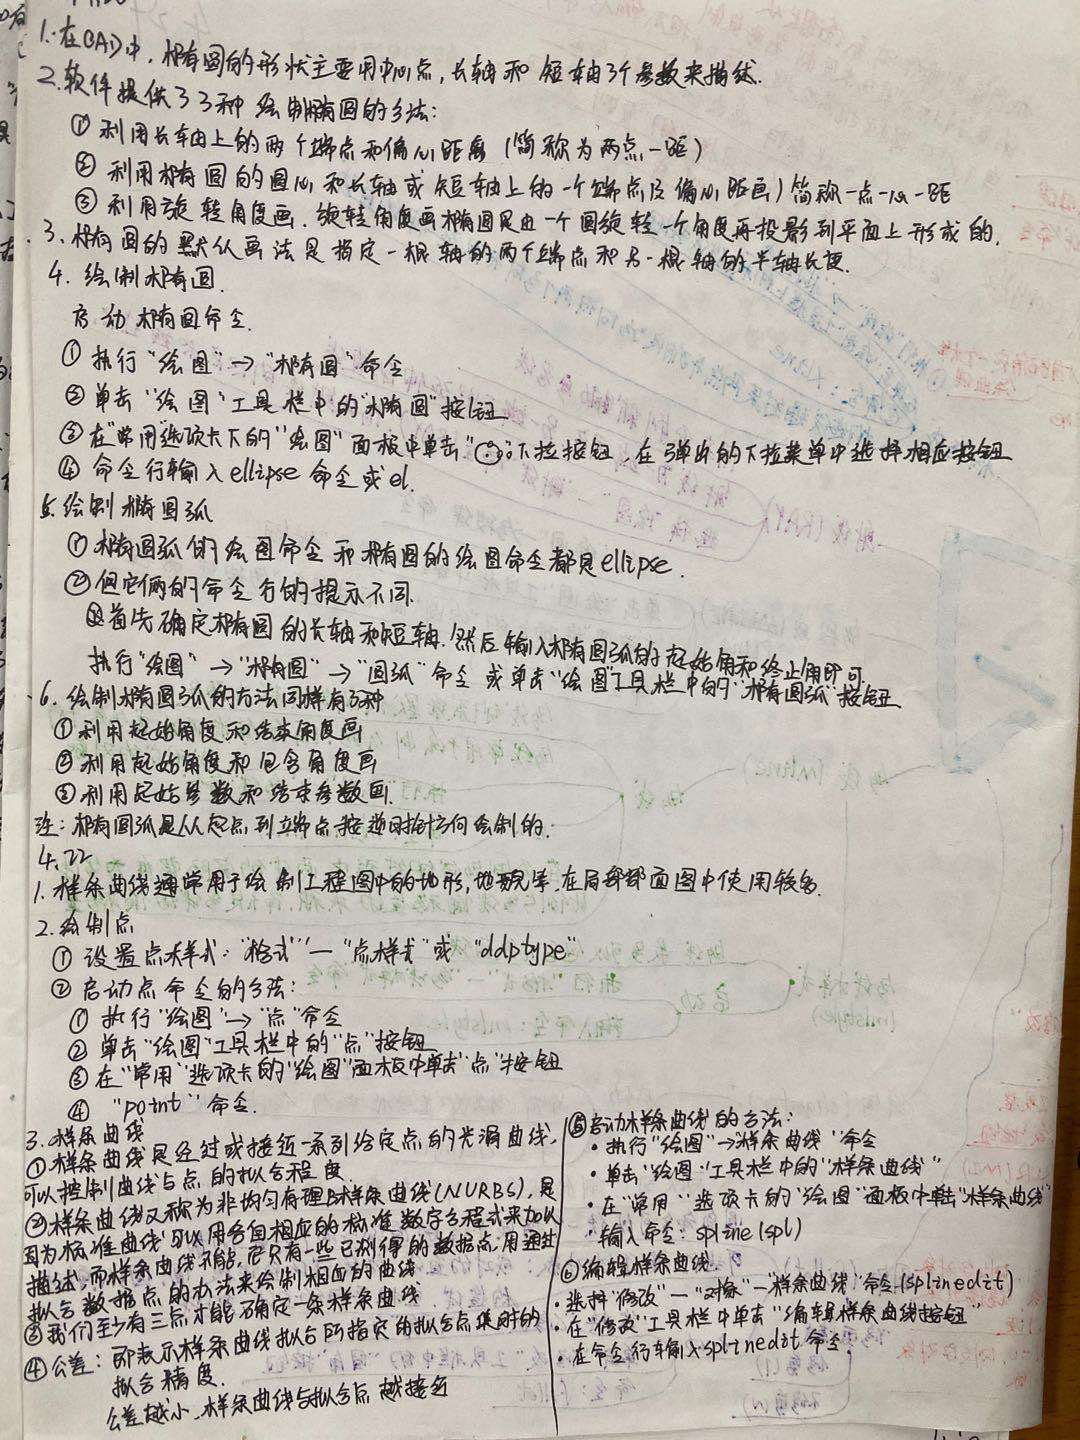 1. 在CAD中，椭圆的形状主要用中心点，长轴和短轴3个参数来描述.
2. 软件提供了3种绘制椭圆的方法:
① 利用长轴上的两个端点和偏心距离(简称为两点一距)
② 利用椭圆的圆心和长轴或短轴上的一个端点及偏心距画)简称一点一心一距
③ 利用旋转角度画. 旋转角度画椭圆是由一个圆旋转一个角度再投影到平面上形成的.
3. 椭圆的默认画法是指定一根轴的两个端点和另一根轴的半轴长度.
4. 绘制椭圆.
启动椭圆命令.
① 执行"绘图"→"椭圆"命令
② 单击"绘图"工具栏中的"椭圆"按钮
③ 在"常用"选项卡下的"绘图"面板中单击" "下拉按钮，在弹出的下拉菜单中选择相应按钮
④ 命令行输入ellipse命令或el.
5. 绘制椭圆弧
① 椭圆弧的绘图命令和椭圆的绘图命令都是ellipse.
② 但它俩的命令行的提示不同.
首先确定椭圆的长轴和短轴.然后输入椭圆弧的起始角和终止角即可.
执行"绘图"→"椭圆"→"圆弧"命令或单击"绘图"工具栏中的"椭圆弧"按钮
6. 绘制椭圆弧的方法同样有3种
① 利用起始角度和结束角度画
② 利用起始角度和包含角度画
③ 利用起始参数和结束参数画.
注: 椭圆弧是从起点到端点按逆时针方向绘制的.
4.22
1. 样条曲线通常用于绘制工程图中的地形，地貌等. 在局部剖面图中使用较多.
2. 绘制点
① 设置点样式: "格式"—"点样式"或 "ddptype"
② 启动点命令的方法:
① 执行"绘图"→"点"命令
② 单击"绘图"工具栏中的"点"按钮
③ 在"常用"选项卡的"绘图"面板中单击"点"按钮
④ "point"命令.
3. 样条曲线
① 样条曲线是经过或接近一系列给定点的光滑曲线，
可以控制曲线与点的拟合程度
② 样条曲线又称为非均匀有理B样条曲线(NURBS)，是
因为标准曲线可以用各自相应的标准数学方程式来加以
描述，而样条曲线不能，它只有一些已测得的数据点，用通过
拟合数据点的办法来绘制相应的曲线
③ 我们至少有三点才能确定一条样条曲线
④ 公差: 即表示样条曲线拟合所指定的拟合点集时的
拟合精度.
公差越小，样条曲线与拟合点越接近
⑤ 启动样条曲线的方法:
· 执行"绘图"→"样条曲线"命令
· 单击"绘图"工具栏中的"样条曲线"
· 在"常用"选项卡的"绘图"面板中单击"样条曲线"
· 输入命令: spline(spl)
⑥ 编辑样条曲线.
· 选择"修改"—"对象"—"样条曲线"命令(splinedit)
· 在"修改"工具栏中单击"编辑样条曲线按钮"
· 在命令行输入splinedit命令.